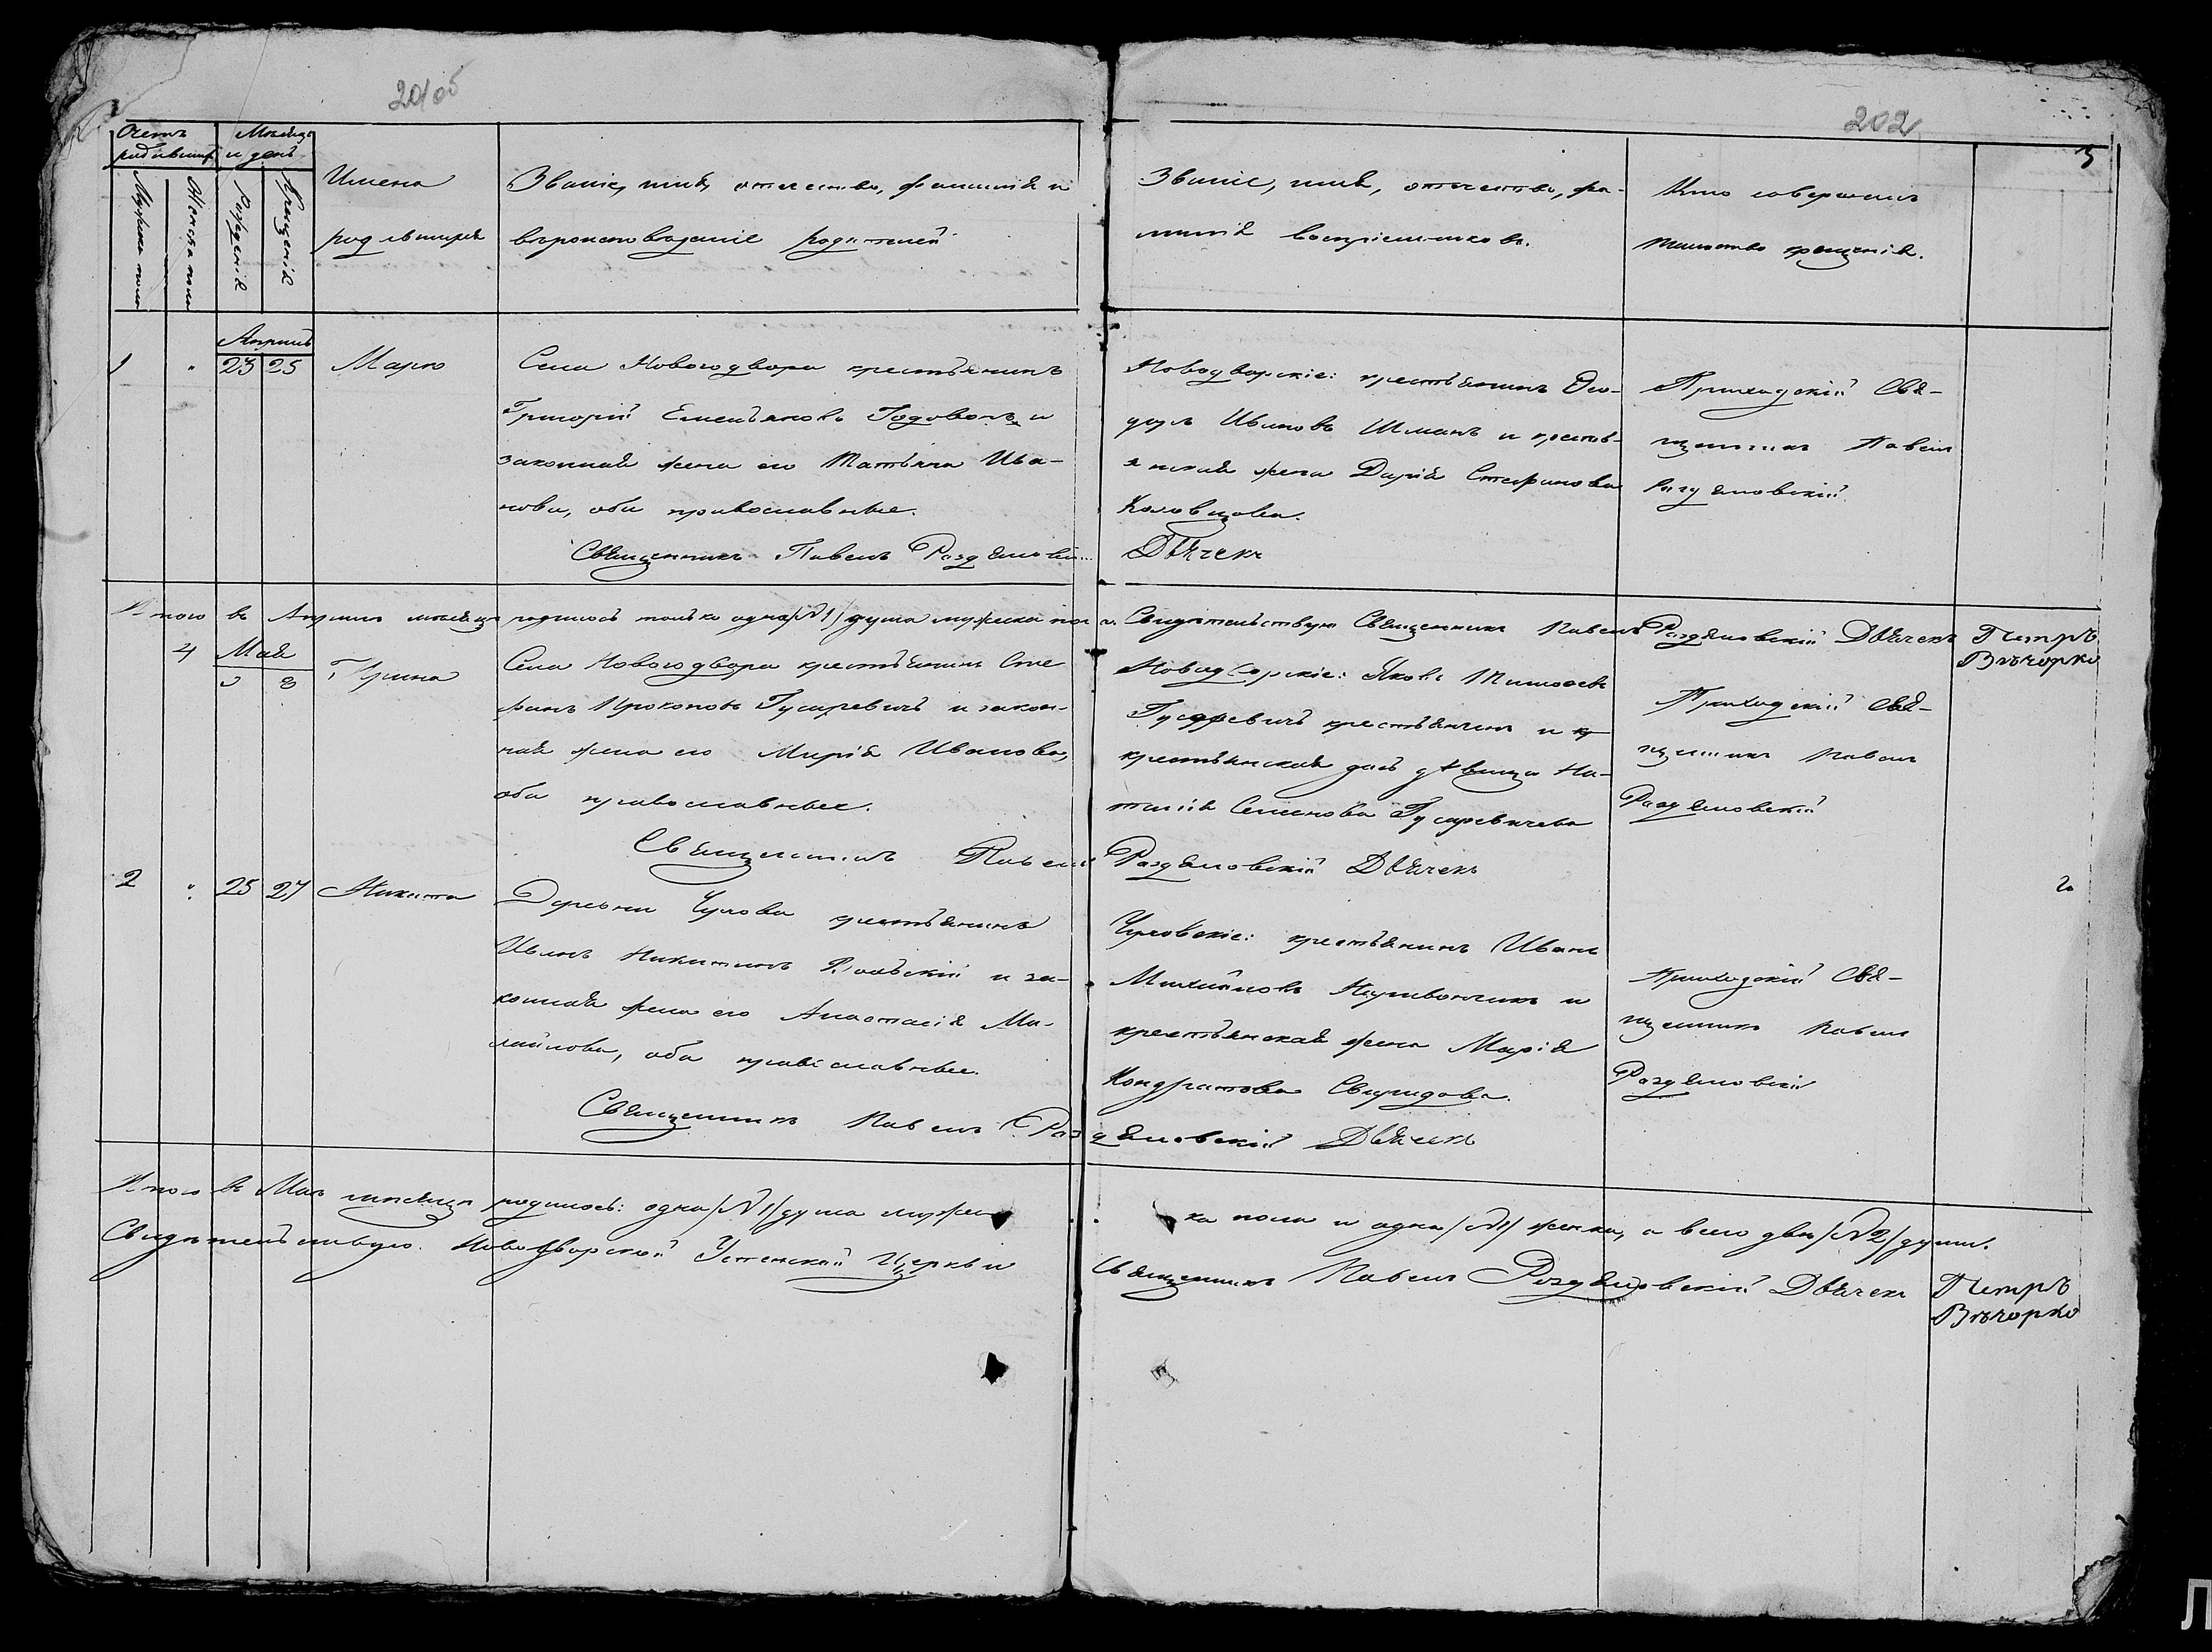 201об
202
3
Счетъ
родившихся
Мѣсяцъ
и день
Мужска пола
Женска пола
Рожденія
Крещенія
Имена
родившихся
Званіе, имя, отечество, фамилія и
вѣроисповѣданіе родителей
Званіе, имя, отечество, фа-
милія воспріемниковъ.
Кто совершалъ
таинство крещенія.
Апрѣль
1 " 23 25 Марко
Села Новогодвора крестьянинъ
Григорій Емельяновъ и
законная жена его Татьяна Ива-
нова, оба православные.
Священникъ Павелъ
Новодворскіе: крестьянинъ Ѳео-
доръ Ивановъ Шманъ и кресть-
янская жена Дарія Стефанова
Двячекъ
Приходскій Свя-
щенникъ Павелъ
Раздяловскій
Итого въ Апрѣлѣ мѣсяцѣ родилось только одна /№1/ душа мужеска пола. Свидѣтельствую Священникъ Павелъ Раздяловскій Двячекъ Петръ
Вѣчорко
4 Май
8 Ирина
Села Новогодвора крестьянинъ Сте-
фанъ Прокоповъ Гусаревичъ и закон-
ная жена его Марія Иванова,
оба православные.
Священникъ Павелъ Раздяловскій Двячекъ
Новодворскіе: Яковъ Тимоѳеевъ
Гусаревичъ крестьянинъ и кр
крестьянская дочь дѣвица На-
талія Семенова Гусаревичева
Приходскій Свя-
щенникъ Павелъ
Раздяловскій
2 " 25 27 Никита
Деревни Чухова крестьянинъ
Иванъ Никитинъ и за-
конная жена его Анастасія Ми-
хайлова, оба православные.
Священникъ Павелъ Раздяловскій Двячекъ
Чуховскіе: крестьянинъ Иванъ
Михайловъ и
крестьянская жена Марія
Кондратова Свиридова.
Приходскій Свя-
щенникъ Павелъ
Раздяловскій
Итого въ Маѣ мѣсяцѣ родилось: одна /№1/ душа мужеска пола и одна /№1/ женска, а всего двѣ /№2/ души.
Свидѣтельствую. Новодворской Успенской Церкви Священникъ Павелъ Раздяловскій Двячекъ Петръ
Вѣчорко